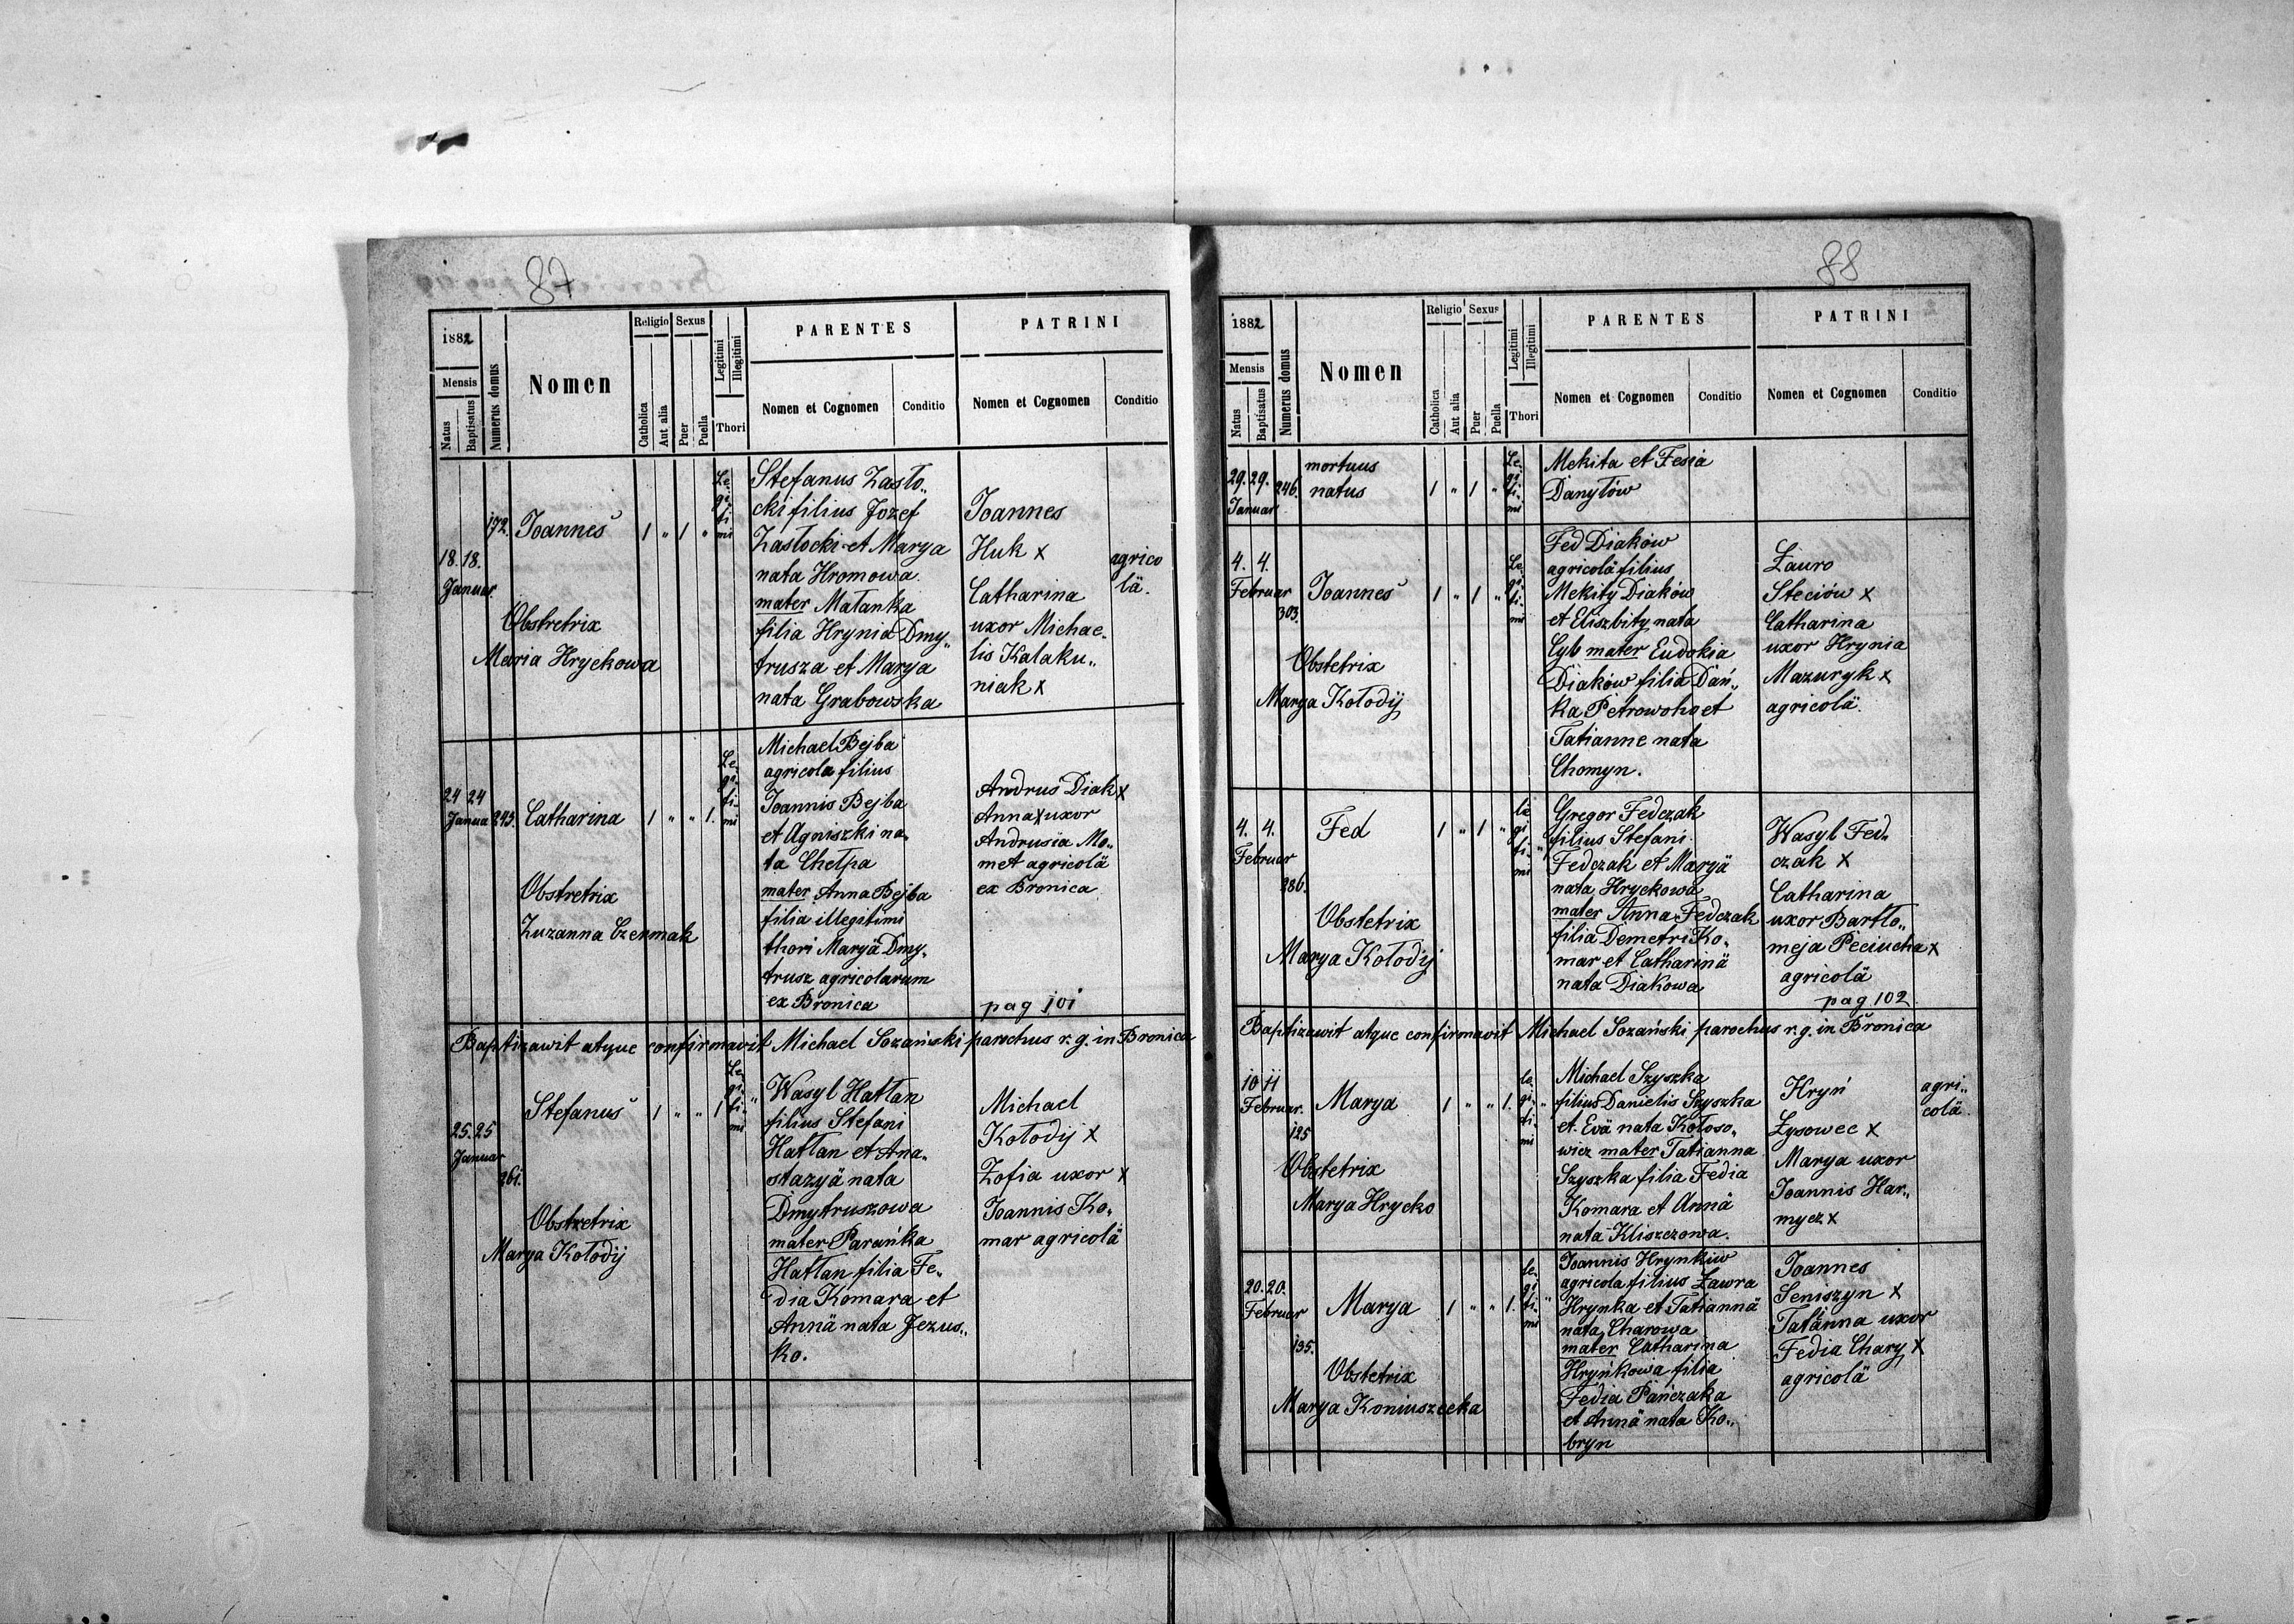 87
1882
Mensis
Natus
Baptisatus
Numerus domus
Nomen
Religio
Catholica
Aut alia
Sexus
Puer
Puella
Legitimi
Illegitimi
Thori
PARENTES
Nomen et Cognomen
Conditio
PATRINI
Nomen et Cognomen
Conditio
18. 18.
Januar.
172.
Joannes
1 " 1 "
Le-
gi-
ti-
mi
Obstretrix
Maria Hryckowa
Stefanus Zasło„
cki filius Jozef
Zasłocki et Marya
nata Hromowa.
mater Małanka
filia Hrynia Dmy„
trusza et Marya
nata Grabowska
Joannes
Huk x
Catharina
uxor Michae„
lis Kałaku„
niak x
agrico
lä.
24 24
Janua
243.
Catharina
1 " " 1.
Le-
gi-
ti-
mi
Obstretrix
Zuzanna Czermak
Michael Bejba
agricola filius
Joannis Bejba
et Agniszki na„
ta Chełpa
mater Anna Bejba
filia illegitimi
thori Maryä Dmy„
trusz agricolarum
ex Bronica
Andrus Diak x
Anna x uxor
Andrusia Mo„
met agricolä
ex Bronica
pag 101
Baptizawit atque confirmavit Michael Sozański parochus r. g. in Bronica
25. 25
Januar
261.
Stefanus
1 " " 1
Le-
gi-
ti-
mi
Obstretrix
Marya Kołodij
Wasyl Hatłan
filius Stefani
Hatłan et Ana„
stazyä nata
Dmytruszowa
mater Parańka
Hatłan filia Fe„
dia Komara et
Annä nata Jezus„
ko.
Michael
Kołodij x
Zofia uxor x
Joannis Ko„
mar agricolä
88
1882
Mensis
Natus
Baptisatus
Numerus domus
Nomen
Religio
Catholica
Aut alia
Sexus
Puer
Puella
Legitimi
Illegitimi
Thori
PARENTES
Nomen et Cognomen
Conditio
PATRINI
Nomen et Cognomen
Conditio
29. 29.
Januar
246.
mortuus
natus
1 " 1 "
Le-
gi-
ti-
mi
Mekita et Fesia
Danyłów
4. 4.
Februar
303.
Joannes
1 " 1 "
Le-
gi-
ti-
mi
Obstetrix
Marya Kołodij
Fed Diaków
agricolä filius
Mekity Diaków
et Eliszbity nata
Cyb mater Eudokia
Diaków filia Dań„
ka Petrowoho et
Tatianne nata
Chomyn.
Ławro
Steciów x
Catharina
uxor Hrynia
Mazuryk x
agricolä.
4. 4.
Februar
286.
Fed
1 " 1 "
le
gi-
ti-
mi
Obstetrix
Marya Kołodij
Gregor Fedczak
filius Stefani
Fedczak et Maryä
nata Hryckowa
mater Anna Fedczak
filia Demetri Ko„
mar et Catharinä
nata Diakowa
Wasyl Fed„
czak x
Catharina
uxor Bartło„
meja Peciucha x
agricolä
pag 102.
Baptizawit atque confirmavit Michael Sozański parochus r. g. in Bronica
10 11
Februar.
125
Marya
1 " " 1.
le-
gi-
ti-
mi
Obstetrix
Marya Hrycko
Michael Szyszka
filius Danielis Szyszka
et Evä nata Kołoso„
wicz mater Tatianna
Szyszka filia Fedia
Komara et Annä
nata Kliszczowa.
Hryń
Łysowec x
Marya uxor
Joannis Har„
mycz x
agri„
colä.
20. 20.
Februar
195.
Marya
1 " " 1.
le-
gi-
ti-
mi
Obstetrix
Marya Koniuszecka
Joannis Hrynkiw
agricola filius Ławra
Hrynka et Tatiannä
nata Charowa
mater Catharina
Hryńkowa filia
Fedia Pańczaka
et Annä nata Ko„
bryn
Joannes
Seniszyn x
Tatänna uxor
Fedia Chary x
agricolä